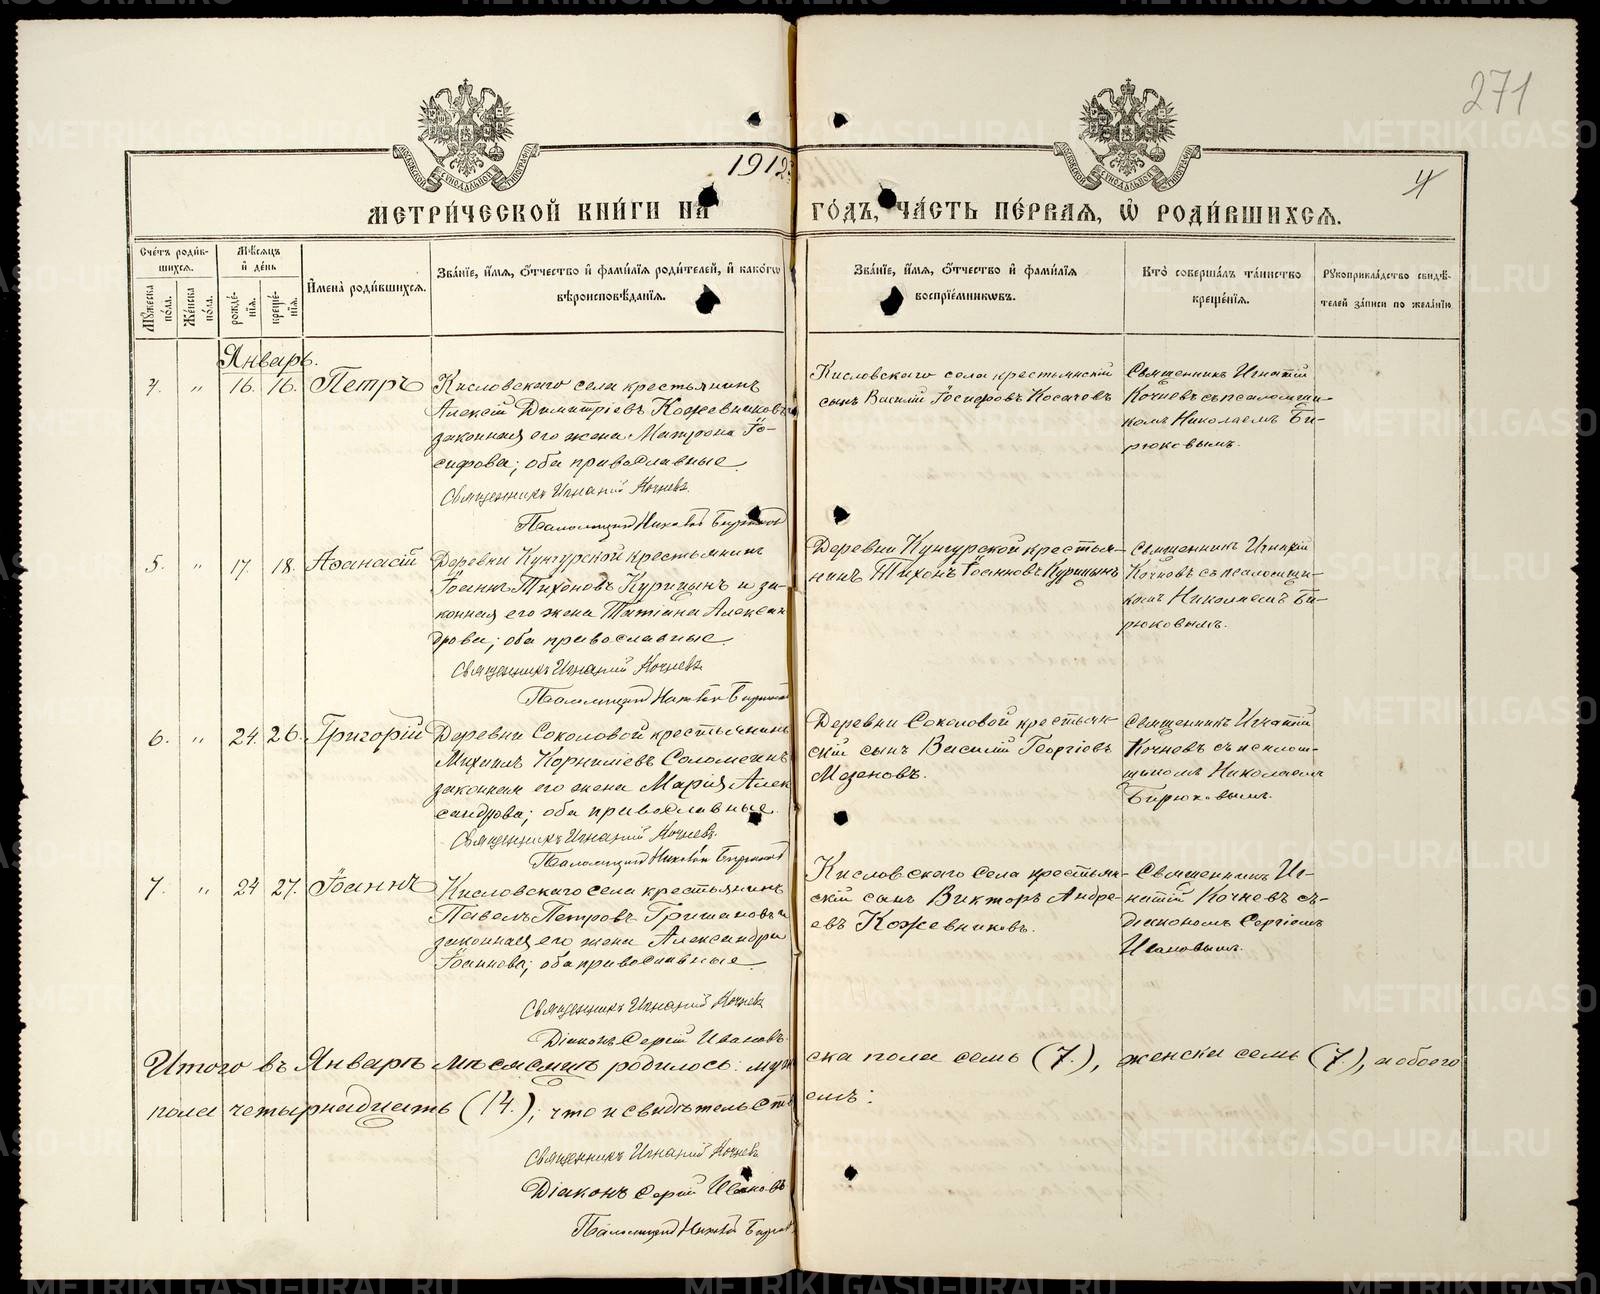 271
1912
4
МЕТРИ́ЧЕСКОЙ КНИ́ГИ НА ГО́ДЪ, ЧА́СТЬ ПЕ́РВАЯ, Ѡ҆ РОДИ́ВШИХСЯ.
Сче́тъ роди́в-
шихся.
Мꙋ́жеска
по́ла.
Же́нска
по́ла.
Мѣ́сяцъ
и҆ де́нь
рожде́-
нїя.
креще́-
нїя.
И҆мена̀ роди́вшихся.
Зва́нїе, и҆́мя, ѻ҆́тчество и҆ фами́лїя роди́телей, и҆ како́гѡ
вѣроисповѣ́данїя.
Зва́нїе, и҆́мя, ѻ҆́тчество и҆ фами́лїя
воспрїе́мникѡвъ.
Кто̀ соверша́лъ та́инство
креще́нїя.
Рꙋкоприкла́дство свидѣ́-
телей за́писи по жела́нїю.
Январь.
4. " 16. 16. Петръ
Кисловскаго села крестьянинъ
Алексій Димитріевъ Кожевниковъ и
законная его жена Матрона Іо-
сифова; оба православные
Священникъ Игнатій Кочневъ.
Псаломщикъ Николай Бирюковъ
Кисловскаго села крестьянскій
сынъ Василій Іосифовъ Косачевъ
Священникъ Игнатій
Кочневъ съ псаломщи-
комъ Николаемъ Би-
рюковымъ.
5. " 17. 18. Аѳанасій
Деревни Кунгурской крестьянинъ
Іоаннъ Тихоновъ Курицынъ и за-
конная его жена Татіана Алексан
дрова; оба православные
Священникъ Игнатій Кочневъ
Псаломщикъ Николай Бирюковъ
Деревни Кунгурской крестья-
нинъ Тихонъ Іоанновъ Курицынъ
Священникъ Игнатій
Кочневъ съ псаломщи-
комъ Николаемъ Би-
рюковымъ.
6. " 24. 26. Григорій
Деревни Соколовой крестьянинъ
Михаилъ Корниліевъ Соломеинъ
законная его жена Марія Алек
сандрова; оба православные
Священникъ Игнатій Кочневъ.
Псаломщикъ Николай Бирюковъ
Деревни Соколовой крестьян-
скій сынъ Василій Георгіевъ
Мезеновъ.
Священникъ Игнатій
Кочневъ съ псалом-
щикомъ Николаемъ
Бирюковымъ.
7. " 24 27. Іоаннъ
Кисловскаго села крестьянинъ
Павелъ Петровъ Гришановъ и
законная его жена Александра
Іоаннова; оба православные
Священникъ Игнатій Кочневъ
Діаконъ Сергій Ивановъ
Кисловскаго села крестьян-
скій сынъ Викторъ Андре-
евъ Кожевниковъ.
Священникъ Иг-
натій Кочневъ съ
діакономъ Сергіемъ
Ивановымъ.
Итого въ Январѣ мѣсяцѣ родилось: муже ска пола семь (7.), женска семь (7), а обоего
пола четырнадцать (14.); что и свидѣтельству емъ:
Священникъ Игнатій Кочневъ
Діаконъ Сергій Ивановъ
Псаломщикъ Николай Бирюковъ
METRIKI.GASO-URAL.RU